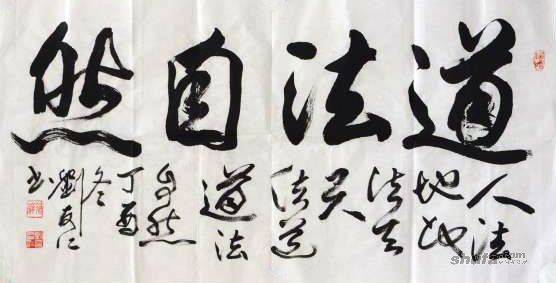 道法自然
人法
地地
法天
天
法道
道法
自然
丁酉
冬
劉友仁
书